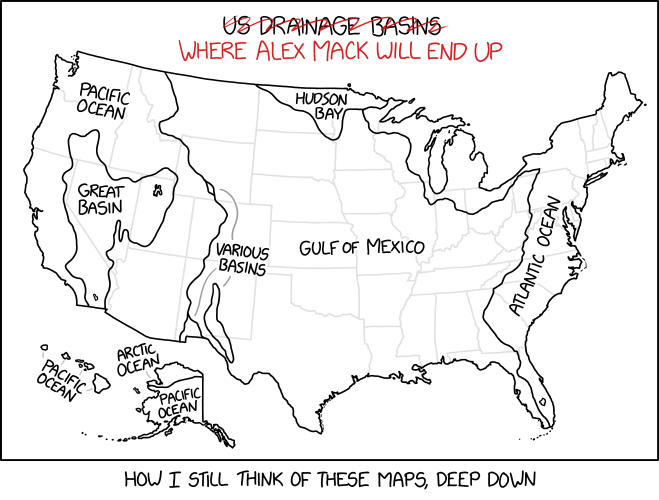 US DRAINAGE BASINS
WHERE ALEX MACK WILL END UP
PACIFIC
OCEAN
HUDSON
BAY
GREAT
BASIN
VARIOUS
BASINS
GULF OF MEXICO
ATLANTIC OCEAN
ARCTIC
OCEAN
PACIFIC
OCEAN
PACIFIC
OCEAN
HOW I STILL THINK OF THESE MAPS, DEEP DOWN